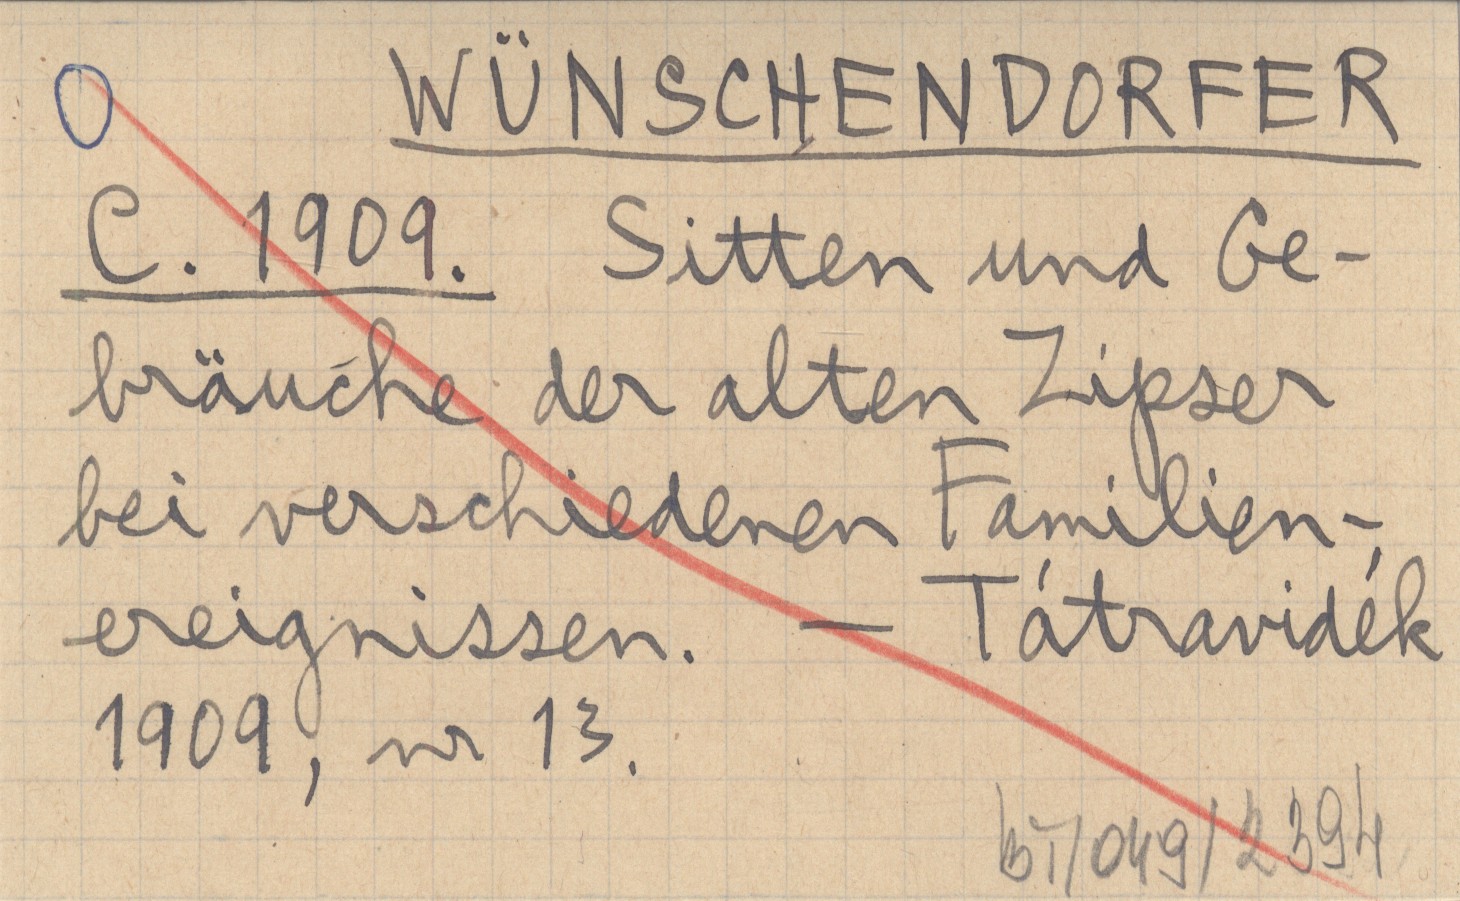 WÜNSCHENDORFER
C. 1909. Sitten und Ge-
bräuche der alten Zipser
bei verschiedenen Familien-
ereignissen. — Tátravidék
1909, nr 13.
BT/049/2394